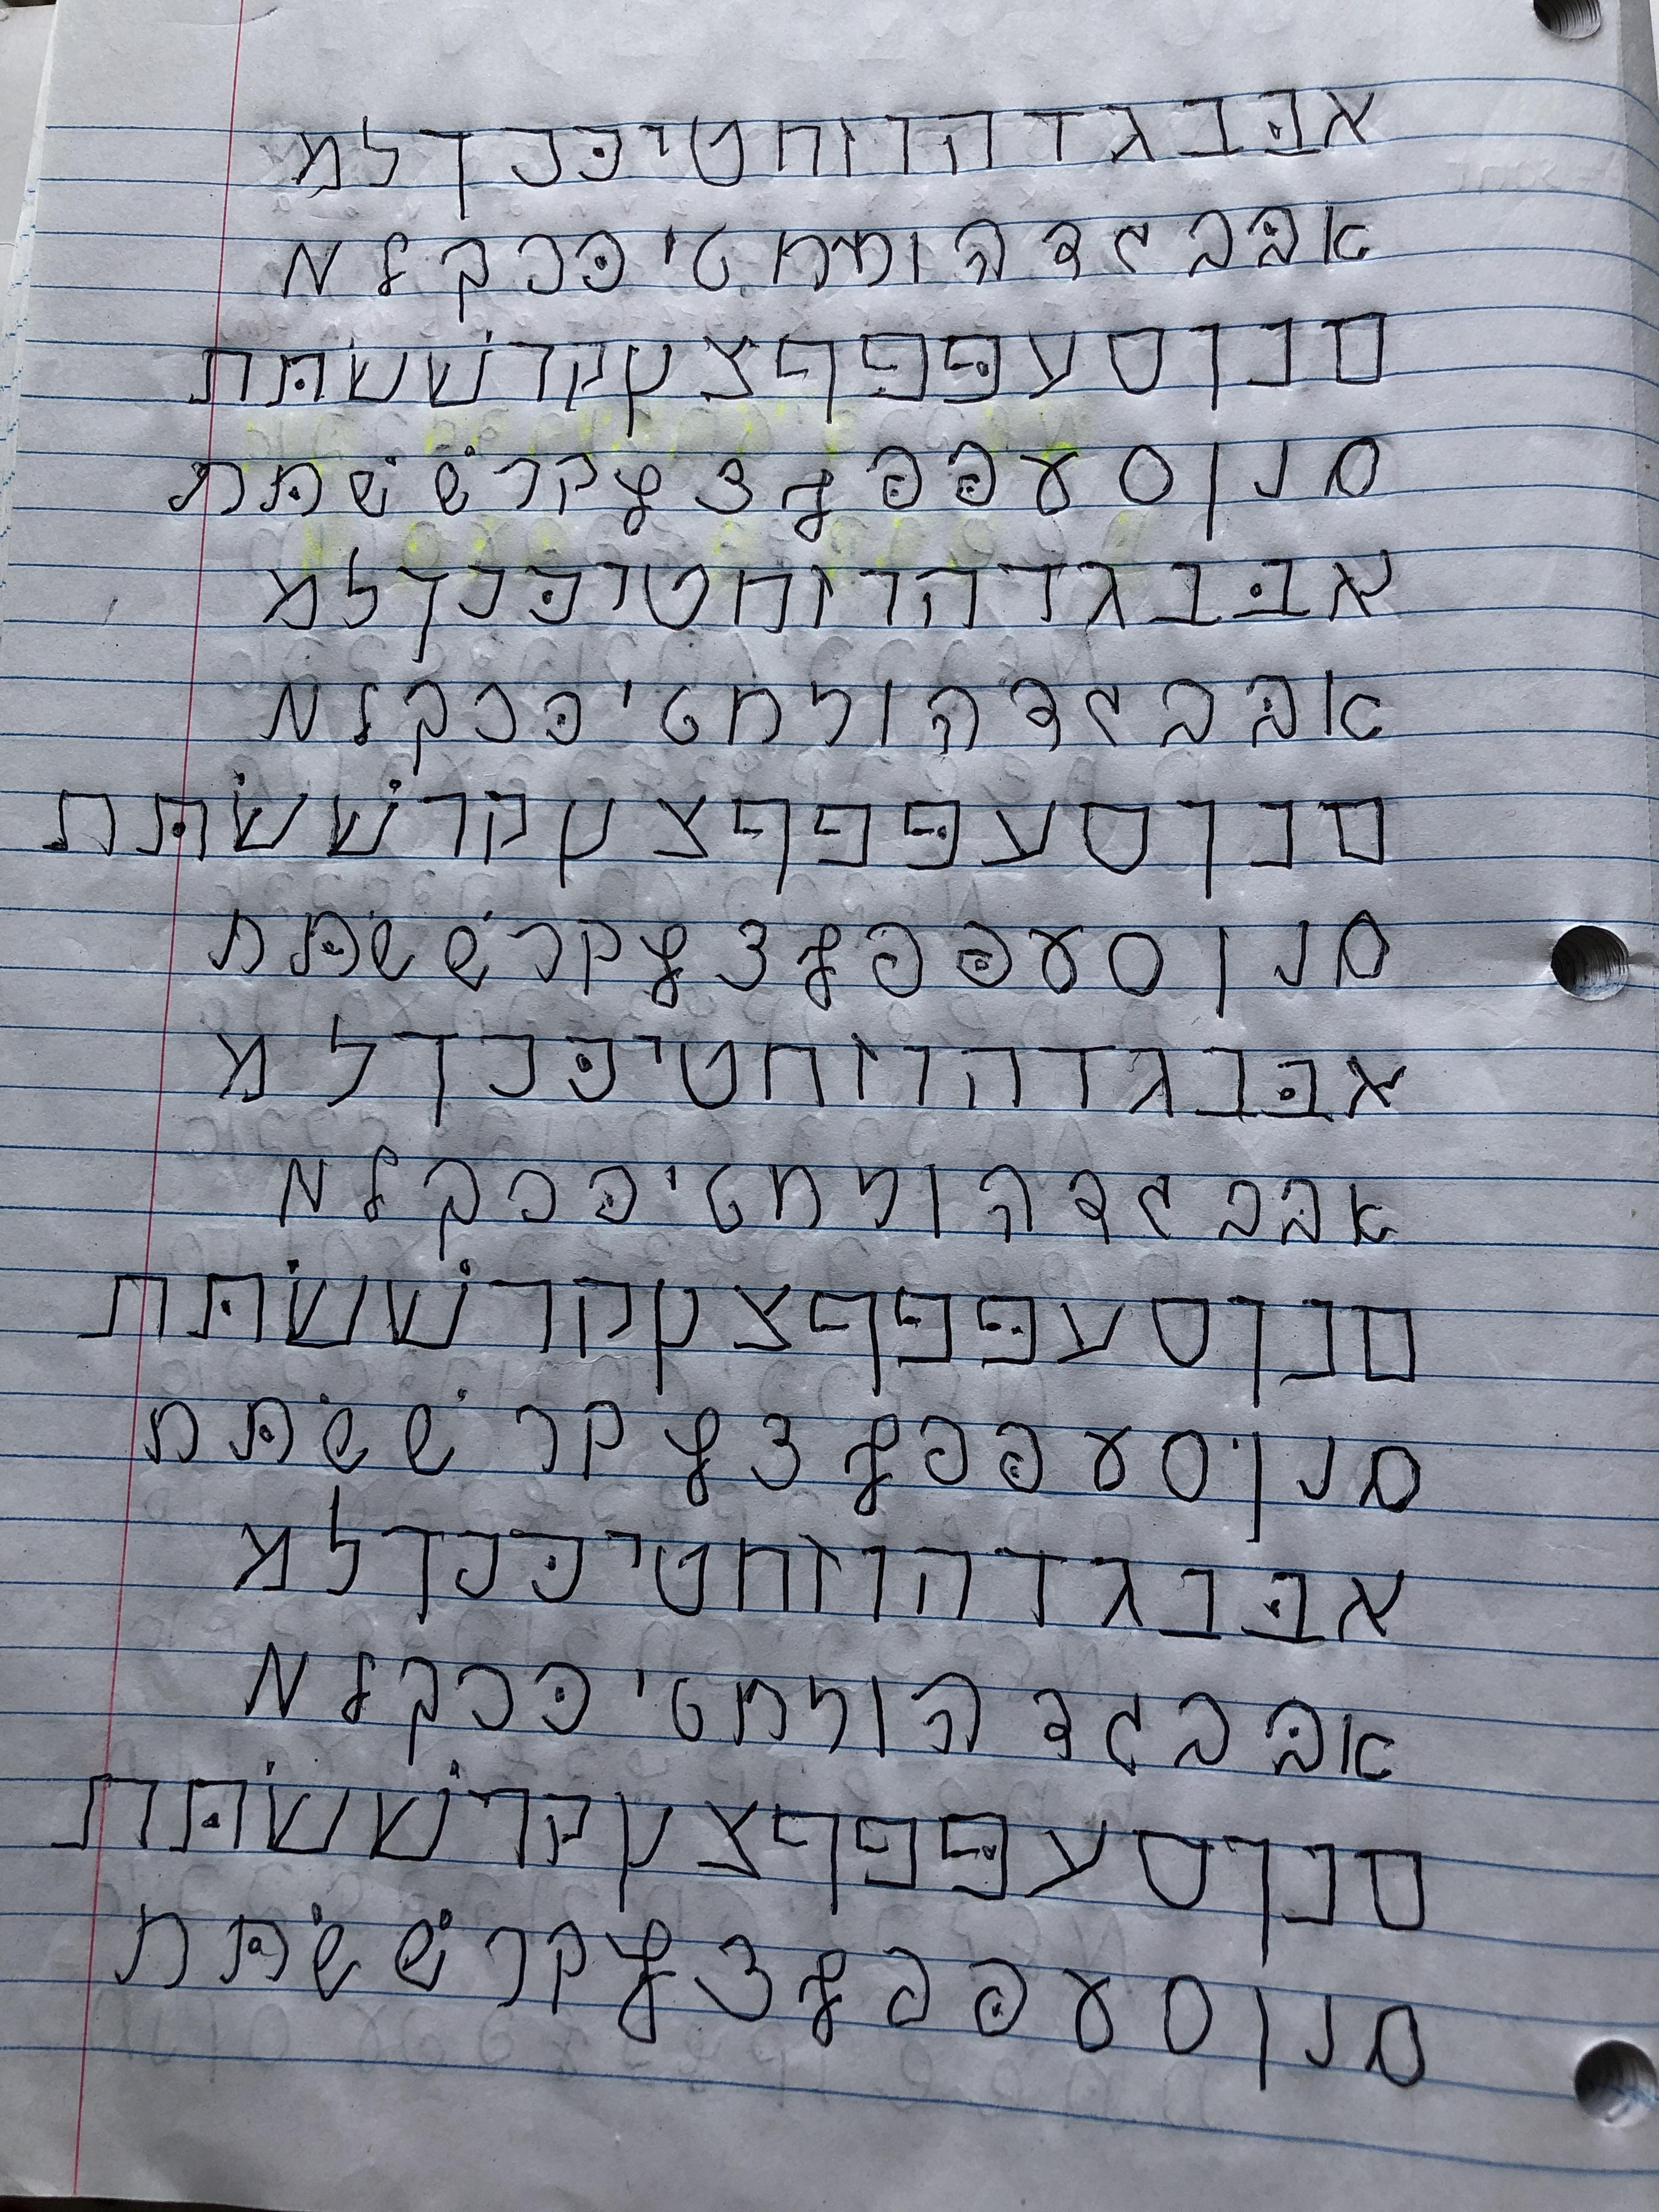 א בּ ב ג ד ה ו ז ח ט י כּ כ ך ל מ
א בּ ב ג ד ה ו ז ח ט י כּ כ ך ל מ
ם נ ן ס ע פּ פ ף צ ץ ק ר שׁ שׂ תּ ת
ם נ ן ס ע פּ פ ף צ ץ ק ר שׁ שׂ תּ ת
א בּ ב ג ד ה ו ז ח ט י כּ כ ך ל מ
א בּ ב ג ד ה ו ז ח ט י כּ כ ך ל מ
ם נ ן ס ע פּ פ ף צ ץ ק ר שׁ שׂ תּ ת
ם נ ן ס ע פּ פ ף צ ץ ק ר שׁ שׂ תּ ת
א בּ ב ג ד ה ו ז ח ט י כּ כ ך ל מ
א בּ ב ג ד ה ו ז ח ט י כּ כ ך ל מ
ם נ ן ס ע פּ פ ף צ ץ ק ר שׁ שׂ תּ ת
ם נ ן ס ע פּ פ ף צ ץ ק ר שׁ שׂ תּ ת
א בּ ב ג ד ה ו ז ח ט י כּ כ ך ל מ
א בּ ב ג ד ה ו ז ח ט י כּ כ ך ל מ
ם נ ן ס ע פּ פ ף צ ץ ק ר שׁ שׂ תּ ת
ם נ ן ס ע פּ פ ף צ ץ ק ר שׁ שׂ תּ ת